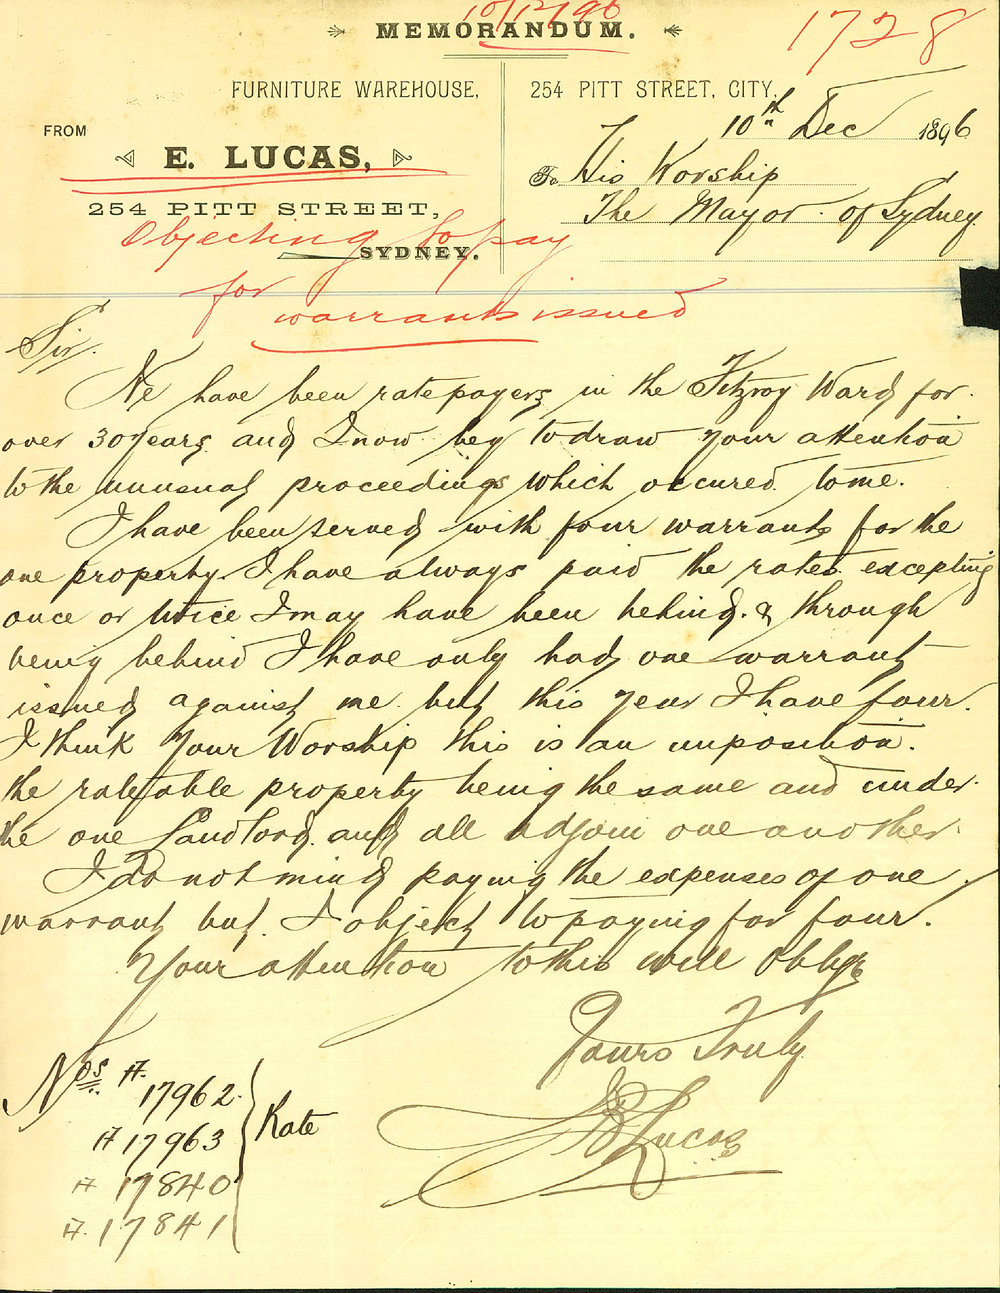 10/12/96
MEMORANDUM.
1728
FURNITURE WAREHOUSE,
254 PITT STREET, CITY,
10th Dec 1896
FROM
E. LUCAS,
To His Worship
254 PITT STREET,
The Mayor of Sydney
SYDNEY.
Objecting to pay
for
warrants issued
Sir.
We have been ratepayers in the Fitzroy Ward for
over 30 years and I now beg to draw your attention
to the unusual proceedings which occured to me.
I have been served with four warrants for the
one property. I have always paid the rates excepting
once or twice I may have been behind. & through
being behind I have only had one warrant
issued against me but this year I have four.
I think Your Worship this is an imposition.
the rateable property being the same and under
the one Landlord. and all adjoin one another.
I do not mind paying the expenses of one
warrant but I object to paying for four.
Your attention to this will Oblige
Yours Truly
E Lucas
Nos A.
17962.
A 17963
A 17840
A. 17841
Rate